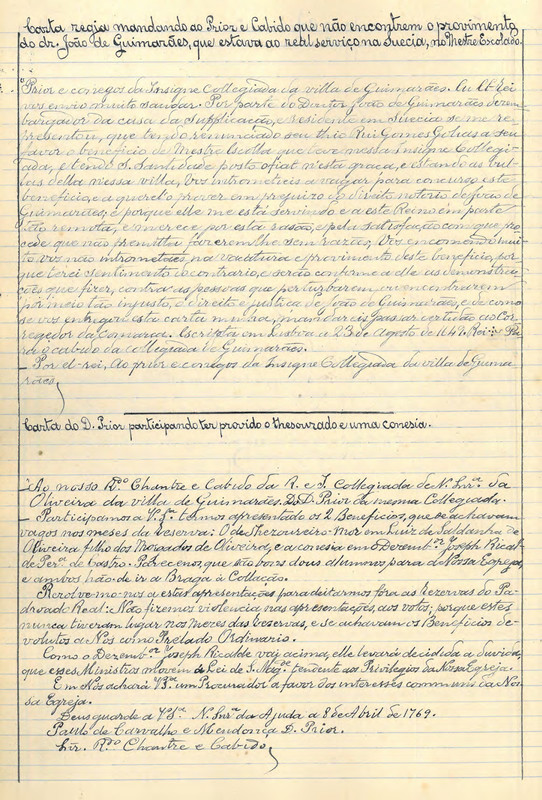 Carta regia mandando ao Prior e Cabido que não encontrem o provimento
do dr. João de Guimarães, que estava ao real serviço na Suecia, no Mestre Escolado.
Prior e conegos da Insigne Collegiada da villa de Guimarães. Eu El-Rei
vos envio muito saudar. Por parte do Doutor João de Guimarães desem-
bargador da casa da Supplicação, e residente em Suecia se me re-
presentou, que tendo renunciado seu thio Rui Gomes Golias a seu
favor o beneficio de Mestre Escolla que teve nessa Insigne Collegia-
da, e tendo S. Santidade posto o fiat n'esta graça, e estando as bul-
las della nessa villa, vos intrometeis a vagar para concurso este
beneficio, e a querel-o prover em prejuizo do direito notorio de João de
Guimarães; e porque elle me está servindo e a este Reino em parte
tão remota, e merece por esta rasão, e pela satisfação com que pro-
cede que não premitta fazerem-lhe sem razão; Vos encomendo mui-
to vos não intrometaes, na vacatura e provimento deste beneficio, por-
que terei sentimento do contrario, e serão conforme a elle as demonstra-
ções que fizer, contra as pessoas que perturbarem, ou encontrarem
intento tão injusto, o direito e justiça de João de Guimarães, e de como
se vos entregar esta carta minha, mandareis passar certidão ao Cor-
regedor da Comarca. Escrita em Lisboa a 23 de Agosto de 1649. Rei. Pa-
ra o cabido da collegiada de Guimarães.
— Por el-rei, Ao prior e conegos da Insigne Collegiada da villa de Guima-
rães,
Carta do D. Prior participando ter provido o thesourado e uma conesia.
"Ao nosso R.do Chantre e Cabido da R. e I. Collegiada de N. Snr.a da
Oliveira da villa de Guimarães. Do D. Prior da mesma Collegiada.
— Participamos a V.S.as termos apresentado os 2 Beneficios, que se achavam
vagos nos meses da reserva: O de Thezoureiro-Mor em Luiz de Saldanha de
Oliveira filho dos Morgados de Oliveira, e a conesia em o Deremb.or Joseph Ricalde
de Per.a de Castro. Parece-nos, que são bons dous alumnos para a Nossa Egreja,
e ambos hão-de ir a Braga à Collação.
Resolvemo-nos a estas apresentações para deitarmos fóra as Rezervas do Pa-
droado Real: Não fizemos violencia nas apresentações, aos votos; porque estes
nunca tiveram lugar nos mezes das reservas, e se acharam os Beneficios de-
volutos a Nós como Prelado Ordinario.
Como o Deremb.or Joseph Ricalde vai acima, elle levará decidida a duvida,
que esses Ministros movem da Lei de S. Mag.de tendente aos Privilegios da Nossa Egreja.
Em Nós achará V.S.a um Procurador a favor dos interesses communs da Nos-
sa Egreja.
Deus guarde a V.S.a N. Snr.a da Ajuda a 8 de Abril de 1769.
Paulo de Carvalho e Mendonça D. Prior.
Snr. R.do Chantre e Cabido,